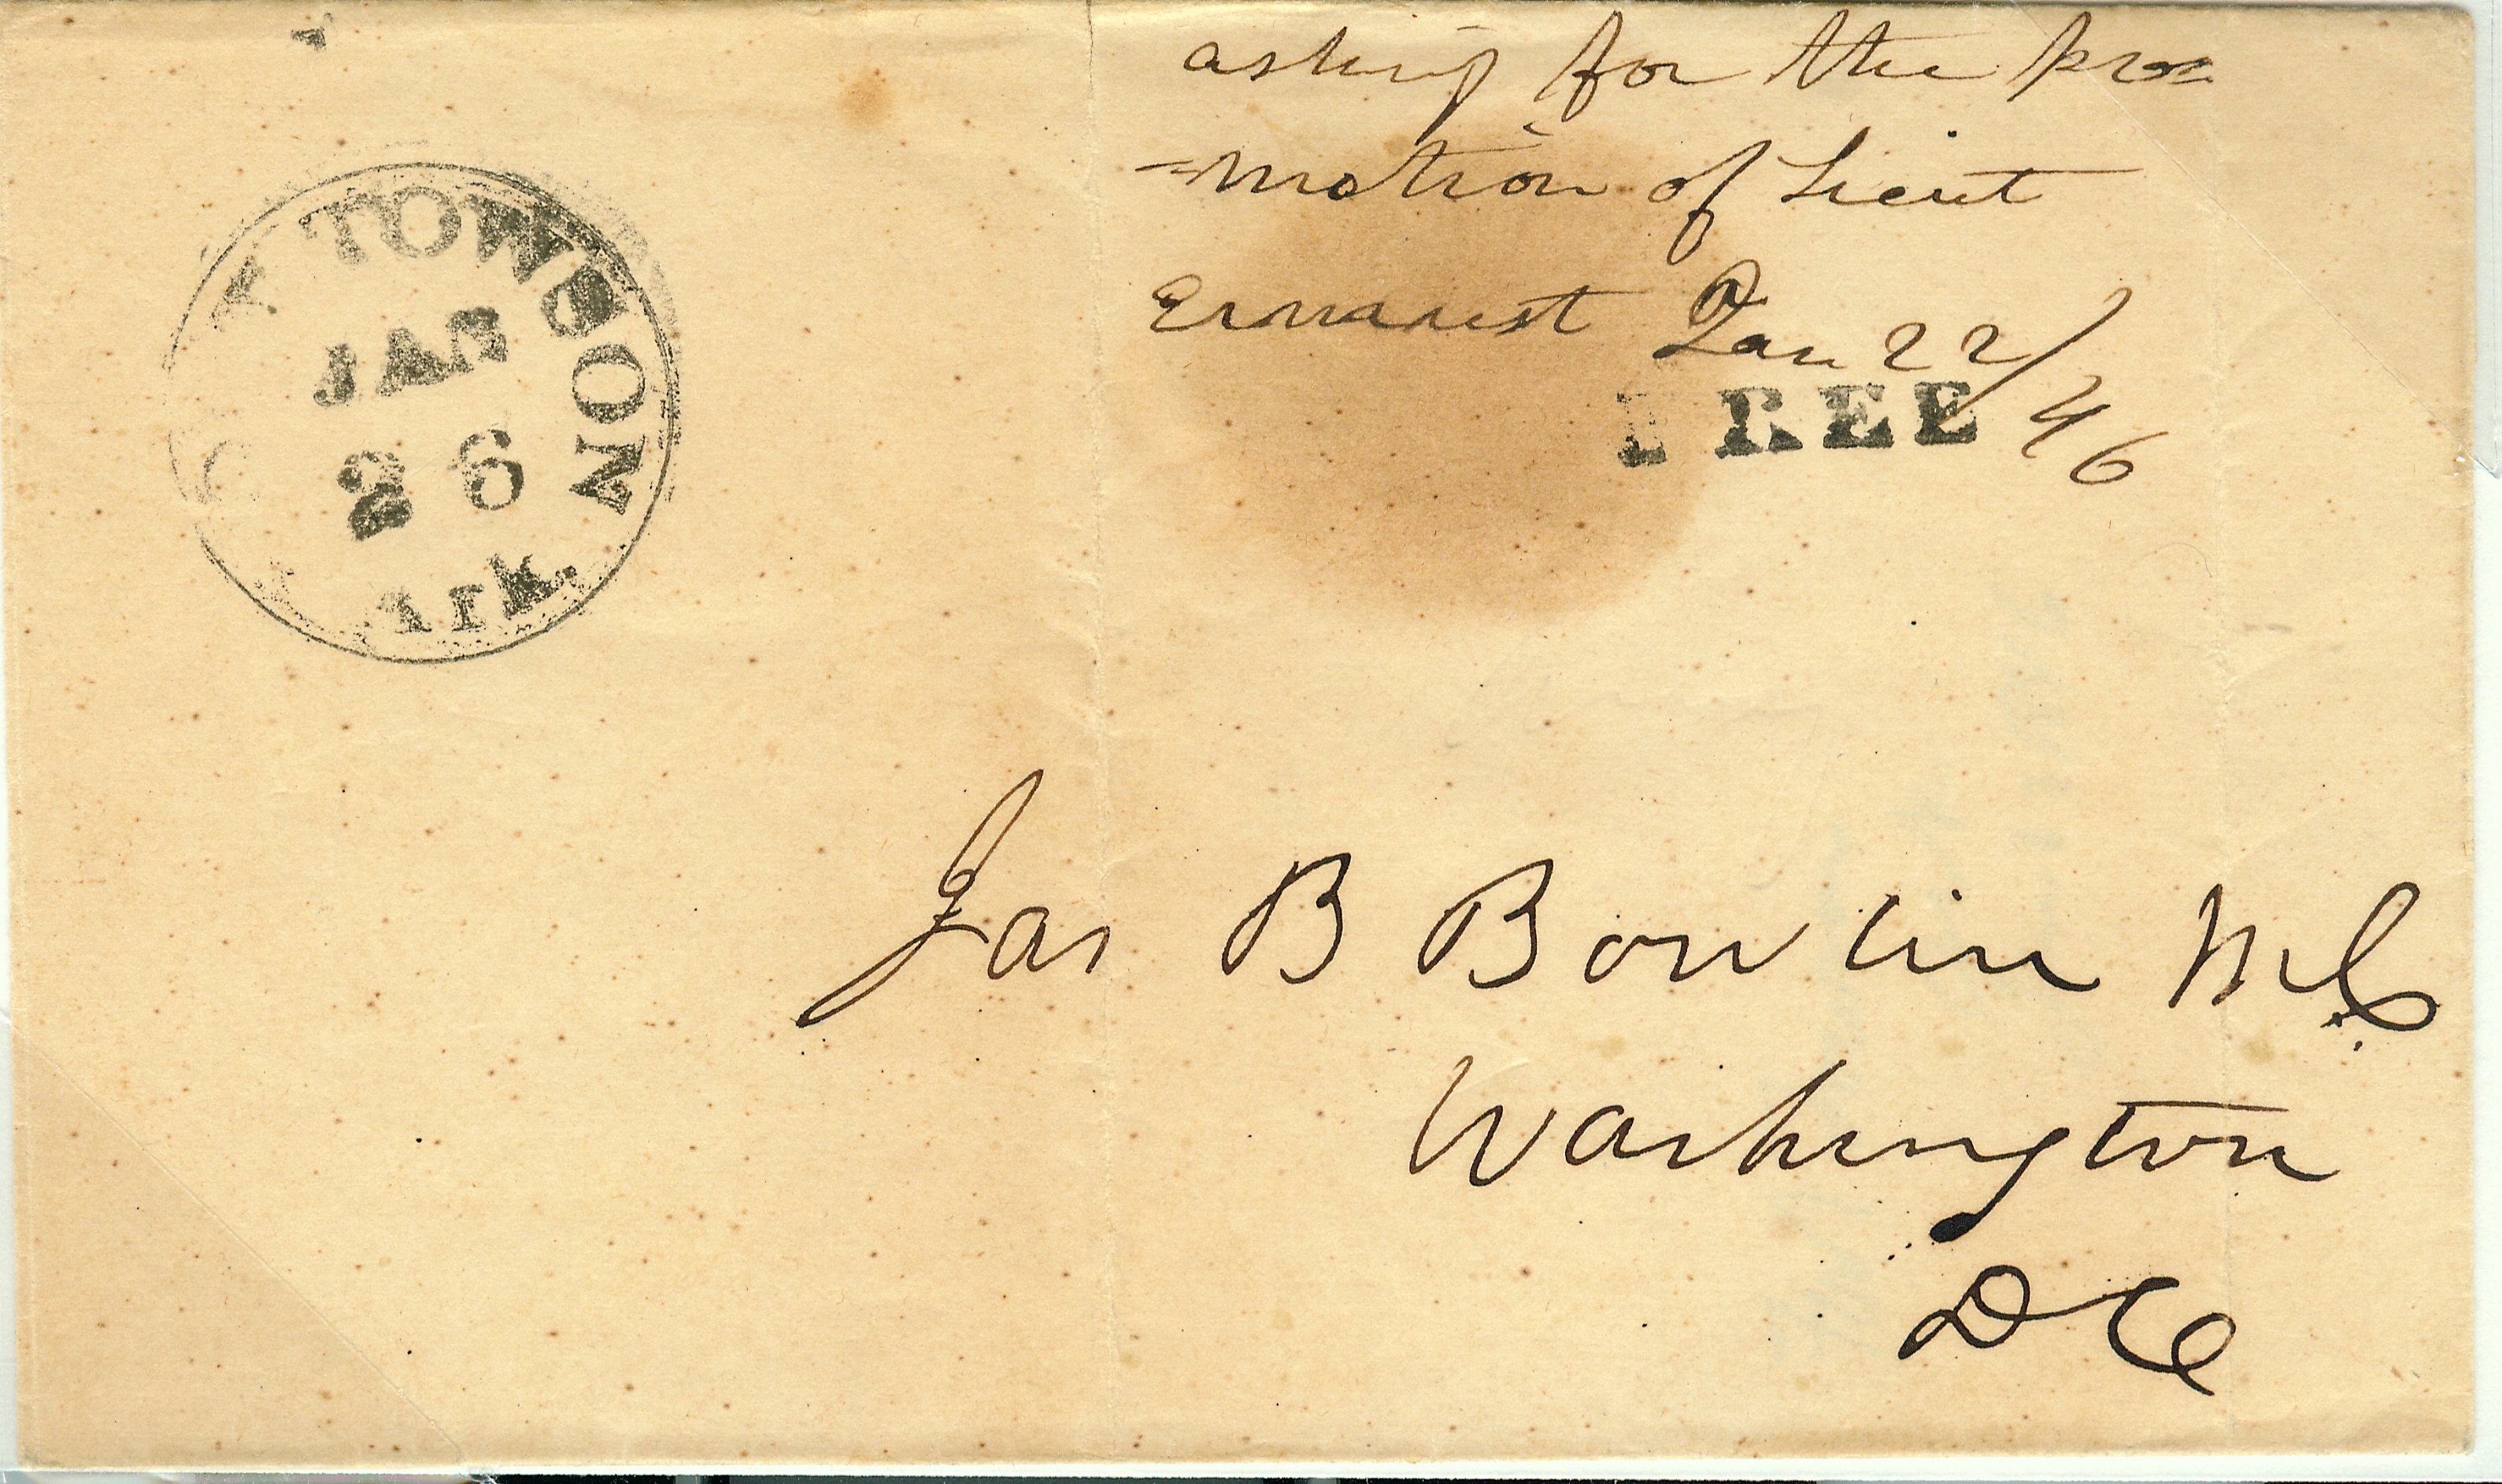 asking for the pro=
=motion of Lieut
Jan 22/46
TOWSON
JAN
26
Ark.
FREE
Jas B Bowlin MC
Washington
DC